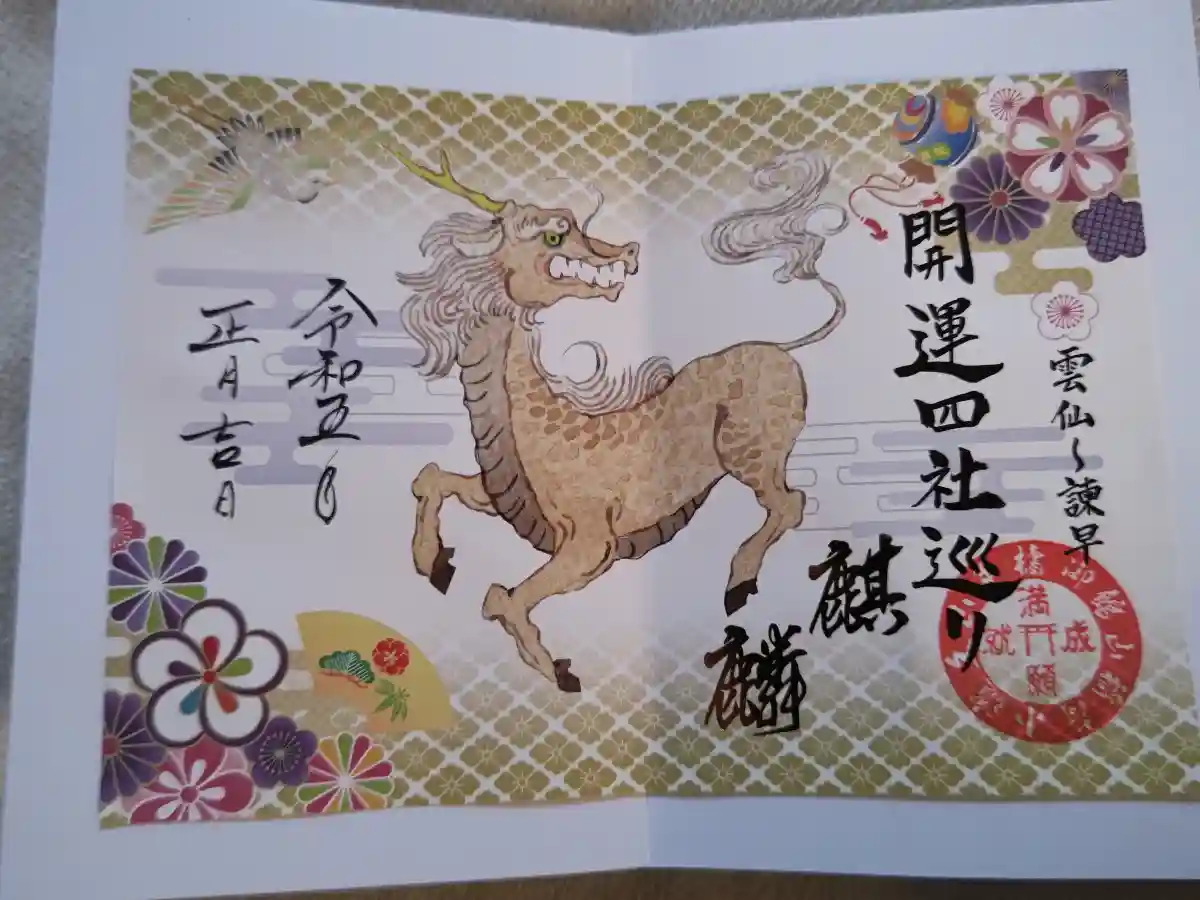 雲仙〜諫早
開運四社巡り
麒麟
満願成就
令和五年
正月吉日